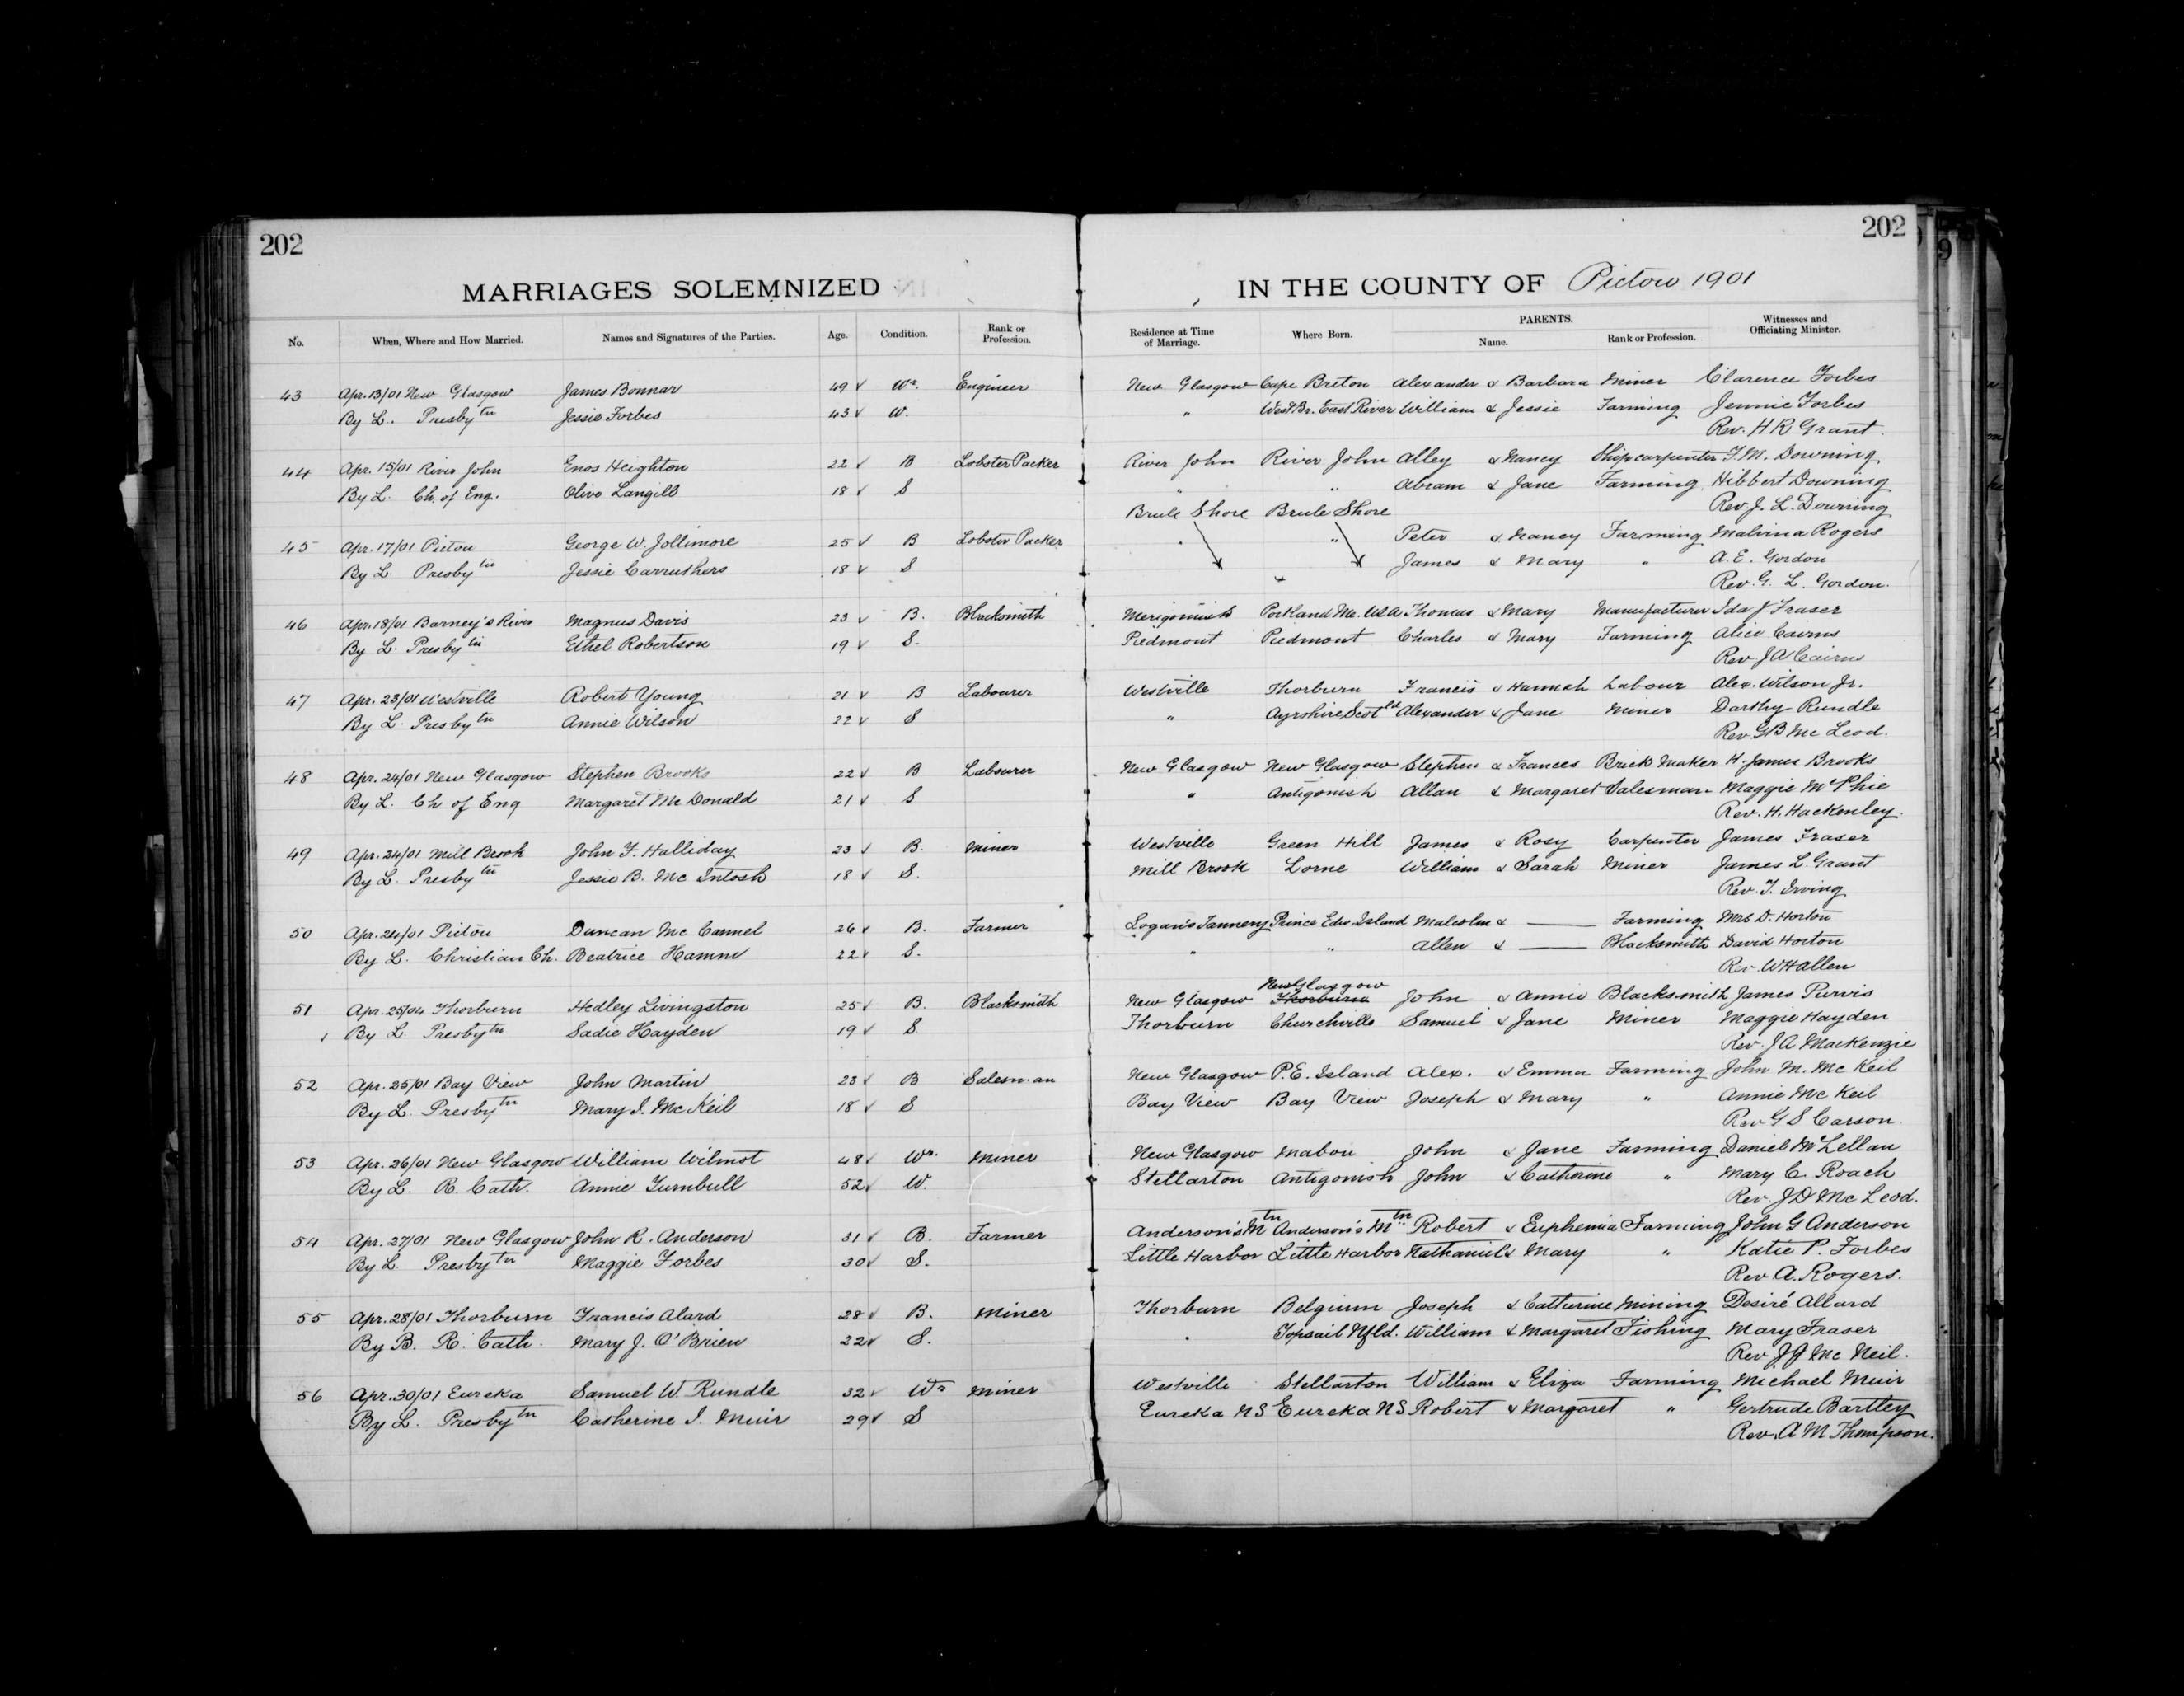 202
202
MARRIAGES SOLEMNIZED IN THE COUNTY OF Pictou 1901
No. When, Where and How Married. Names and Signatures of the Parties. Age. Condition. Rank or Profession. Residence at Time of Marriage. Where Born. PARENTS. Name. Rank or Profession. Witnesses and Officiating Minister.
43 Apr. 13/01 New Glasgow James Bonnar 49 ✓ Wr. Engineer New Glasgow Cape Breton Alexander & Barbara Miner Clarence Forbes
By L. Presbytn Jessie Forbes 43 ✓ W. " West Br. East River William & Jessie Farming Jennie Forbes
Rev. H R Grant.
44 Apr. 15/01 River John Enos Heighton 22 ✓ B Lobster Packer River John River John Alley & Nancy Shipcarpenter F. M. Downing
By L. Ch. of Eng. Olive Langill 18 ✓ S " " Abram & Jane Farming Hibbert Downing
Brule Shore Brule Shore Rev. J. L. Downing
45 Apr. 17/01 Pictou George W. Jollimore 25 ✓ B Lobster Packer " " Peter & Nancy Farming Malvina Rogers
By L. Presbytn Jessie Carruthers 18 ✓ S James & Mary " A. E. Gordon
Rev. G. L. Gordon.
46 Apr. 18/01 Barney's River Magnus Davis 23 ✓ B. Blacksmith Merigomish Portland Me. USA Thomas & Mary Manufacturer Ida J Fraser
By L. Presbytn Ethel Robertson 19 ✓ S. Piedmont Piedmont Charles & Mary Farming Alice Cairns
Rev J A Cairns
47 Apr. 23/01 Westville Robert Young 21 ✓ B Labourer Westville Thorburn Francis & Hannah Labour Alex. Wilson Jr.
By L. Presbytn Annie Wilson 22 ✓ S " Ayrshire Scotld Alexander & Jane Miner Darthy Rundle
Rev. G B Mc Leod.
48 Apr. 24/01 New Glasgow Stephen Brooks 22 ✓ B Labourer New Glasgow New Glasgow Stephen & Frances Brick Maker H. James Brooks
By L. Ch of Eng Margaret Mc Donald 21 ✓ S " Antigonish Allan & Margaret Salesman Maggie McPhie
Rev. H. Hackenley.
49 Apr. 24/01 Mill Brook John F. Halliday 23 ✓ B. Miner Westville Green Hill James & Rosy Carpenter James Fraser
By L. Presbytn Jessie B. Mc Intosh 18 ✓ S. Mill Brook Lorne William & Sarah Miner James L. Grant
Rev. T. Irving
50 Apr. 24/01 Pictou Duncan Mc Cannel 26 ✓ B. Farmer Logan's Tannery Prince Edw. Island Malcolm & — Farming Mrs D. Horton
By L. Christian Ch. Beatrice Hamm 22 ✓ S. " " Allen & — Blacksmith David Horton
Rev. W H Allen
New Glasgow
51 Apr. 25/01 Thorburn Hedley Livingston 25 ✓ B. Blacksmith New Glasgow Thorburn John & Annie Blacksmith James Purvis
By L Presbytn Sadie Hayden 19 ✓ S. Thorburn Churchville Samuel & Jane Miner Maggie Hayden
Rev. J A MacKenzie
52 Apr. 25/01 Bay View John Martin 23 ✓ B Salesman New Glasgow P.E. Island Alex. & Emma Farming John M. Mc Keil
By L. Presbytn Mary I. Mc Keil 18 ✓ S Bay View Bay View Joseph & Mary " Annie Mc Keil
Rev G S Carson.
53 Apr. 26/01 New Glasgow William Wilmot 48 ✓ Wr. Miner New Glasgow Mabou John & Jane Farming Daniel McLellan
By L. R. Cath. Annie Turnbull 52 ✓ W. Stellarton Antigonish John & Catherine " Mary C. Roach
Rev. J D Mc Leod.
54 Apr. 27/01 New Glasgow John R. Anderson 31 ✓ B. Farmer Anderson's Mtn Anderson's Mtn Robert & Euphemia Farming John G Anderson
By L. Presbytn Maggie Forbes 30 ✓ S. Little Harbor Little Harbor Nathaniel & Mary " Katie P. Forbes
Rev A. Rogers.
55 Apr. 28/01 Thorburn Francis Alard 28 ✓ B. Miner Thorburn Belgium Joseph & Catherine Mining Desiré Allard
By B. R. Cath. Mary J. O'Brien 22 ✓ S. " Topsail Nfld. William & Margaret Fishing Mary Fraser
Rev J J Mc Neil.
56 Apr. 30/01 Eureka Samuel W. Rundle 32 ✓ Wr Miner Westville Stellarton William & Eliza Farming Michael Muir
By L. Presbytn Catherine I. Muir 29 ✓ S Eureka N S Eureka N S Robert & Margaret " Gertrude Bartley
Rev. A M Thompson.